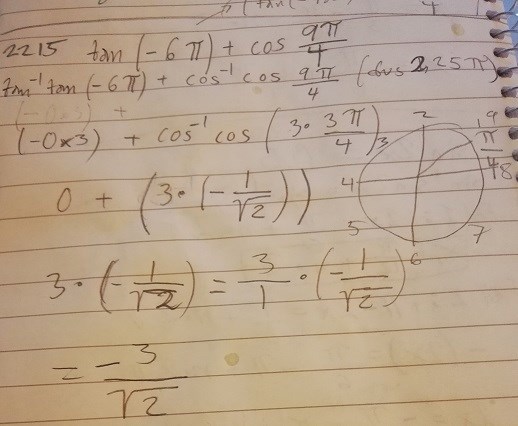 2215 tan(-6π) + cos 9π/4
tan⁻¹ tan(-6π) + cos⁻¹ cos 9π/4 (dus 2,25π)
(-0×3) + cos⁻¹ cos (3 · 3π/4)
0 + (3 · (-1/√2))
3 · (-1/√2) = 3/1 · (-1/√2)
= -3/√2
2
1 9
π/4
3
4
8
5
7
6